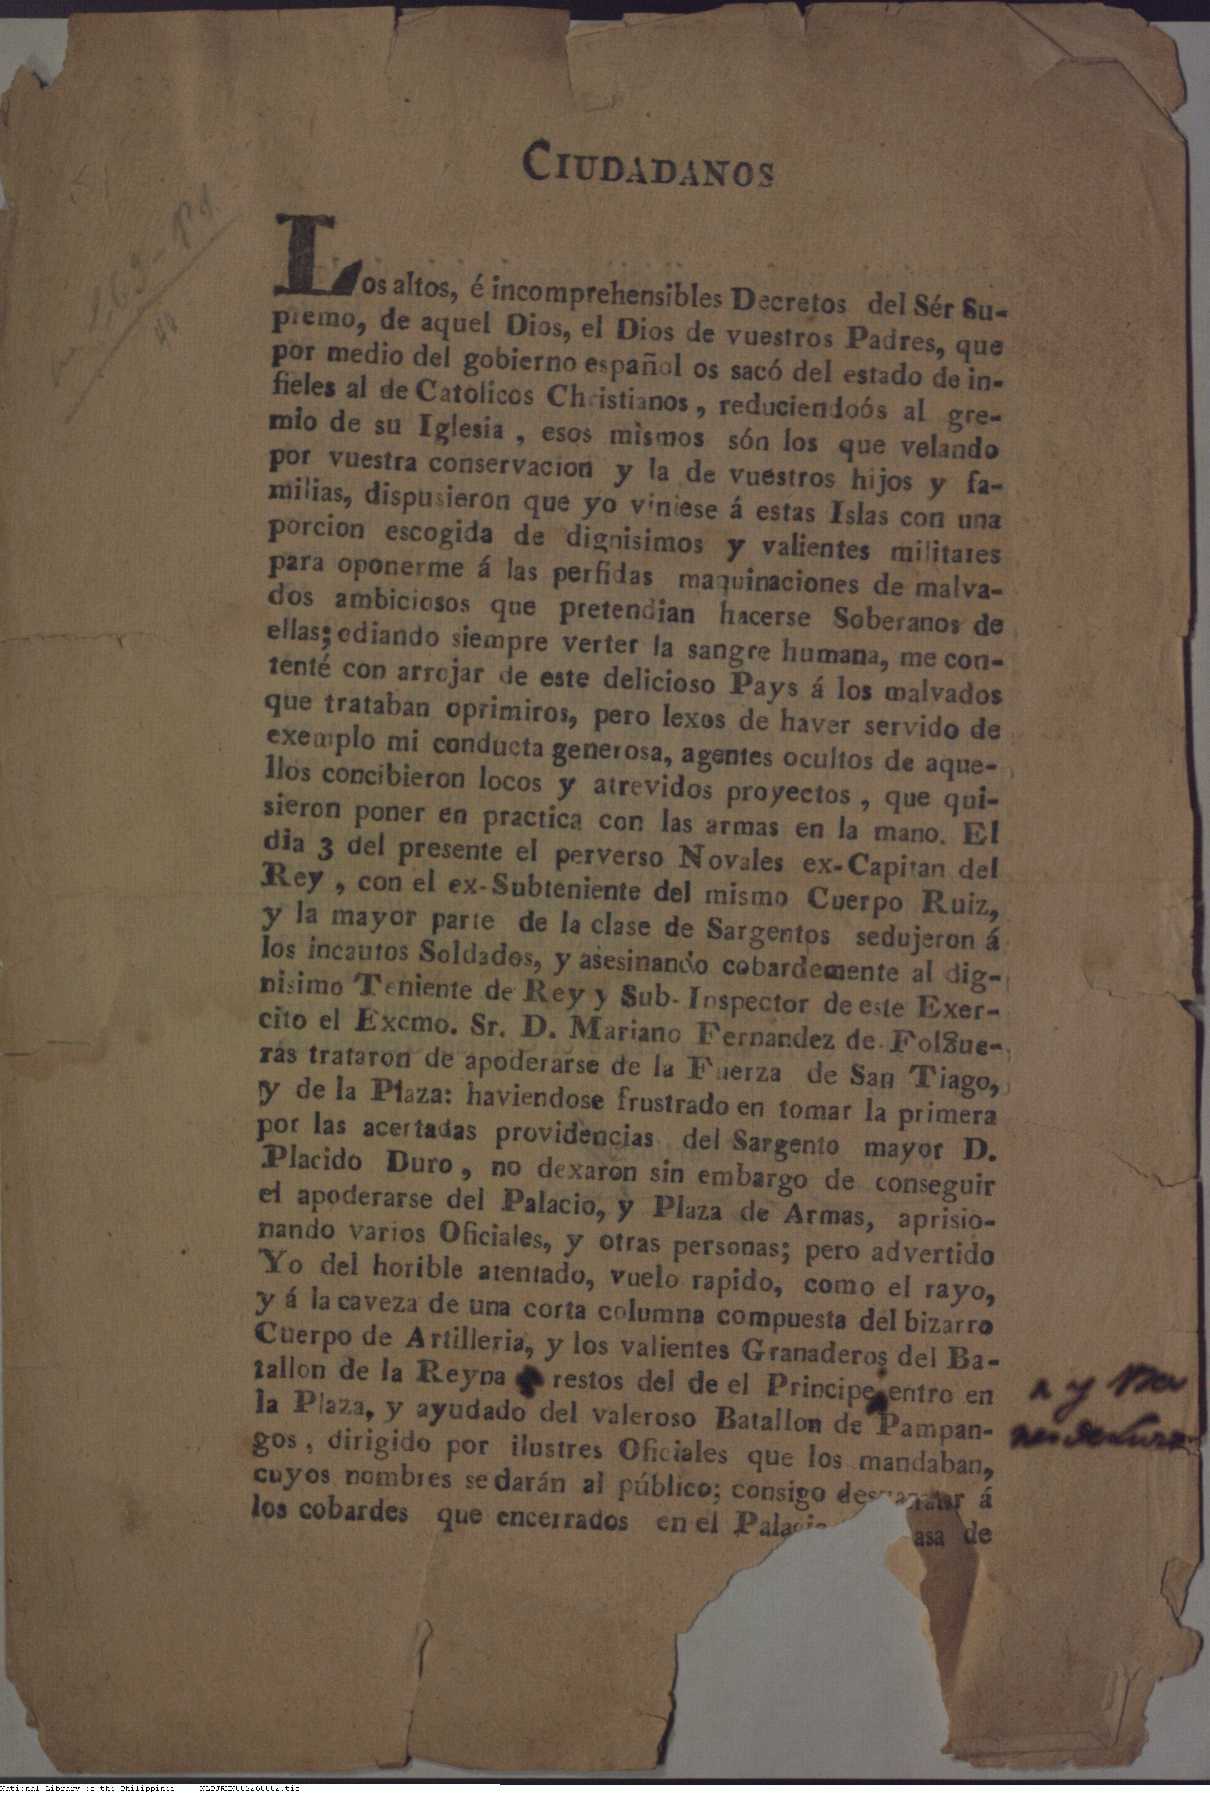 CIUDADANOS
Los altos, é incomprehensibles Decretos del Sér Su-
premo, de aquel Dios, el Dios de vuestros Padres, que
por medio del gobierno español os sacó del estado de in-
fieles al de Catolicos Christianos, reduciendoós al gre-
mio de su Iglesia, esos mismos són los que velando
por vuestra conservacion y la de vuestros hijos y fa-
milias, dispusieron que yo viniese á estas Islas con una
porcion escogida de dignisimos y valientes militares
para oponerme á las perfidas maquinaciones de malva-
dos ambiciosos que pretendian hacerse Soberanos de
ellas; odiando siempre verter la sangre humana, me con-
tenté con arrojar de este delicioso Pays á los malvados
que trataban oprimiros, pero lexos de haver servido de
exemplo mi conducta generosa, agentes ocultos de aque-
llos concibieron locos y atrevidos proyectos, que qui-
sieron poner en practica con las armas en la mano. El
dia 3 del presente el perverso Novales ex-Capitan del
Rey, con el ex-Subteniente del mismo Cuerpo Ruiz,
y la mayor parte de la clase de Sargentos sedujeron á
los incautos Soldados, y asesinando cobardemente al dig-
nisimo Teniente de Rey y Sub-Inspector de este Exer-
cito el Excmo. Sr. D. Mariano Fernandez de Folgue-
ras trataron de apoderarse de la Fuerza de San Tiago,
y de la Plaza: haviendose frustrado en tomar la primera
por las acertadas providencias del Sargento mayor D.
Placido Duro, no dexaron sin embargo de conseguir
el apoderarse del Palacio, y Plaza de Armas, aprisio-
nando varios Oficiales, y otras personas; pero advertido
Yo del horible atentado, vuelo rapido, como el rayo,
y á la caveza de una corta columna compuesta del bizarro
Cuerpo de Artilleria, y los valientes Granaderos del Ba-
tallon de la Reyna restos del de el Principe entro en
la Plaza, y ayudado del valeroso Batallon de Pampan-
gos, dirigido por ilustres Oficiales que los mandaban,
cuyos nombres se darán al público; consigo desvaratar á
los cobardes que encerrados en el Palacio asa de
National Library of the Philippines